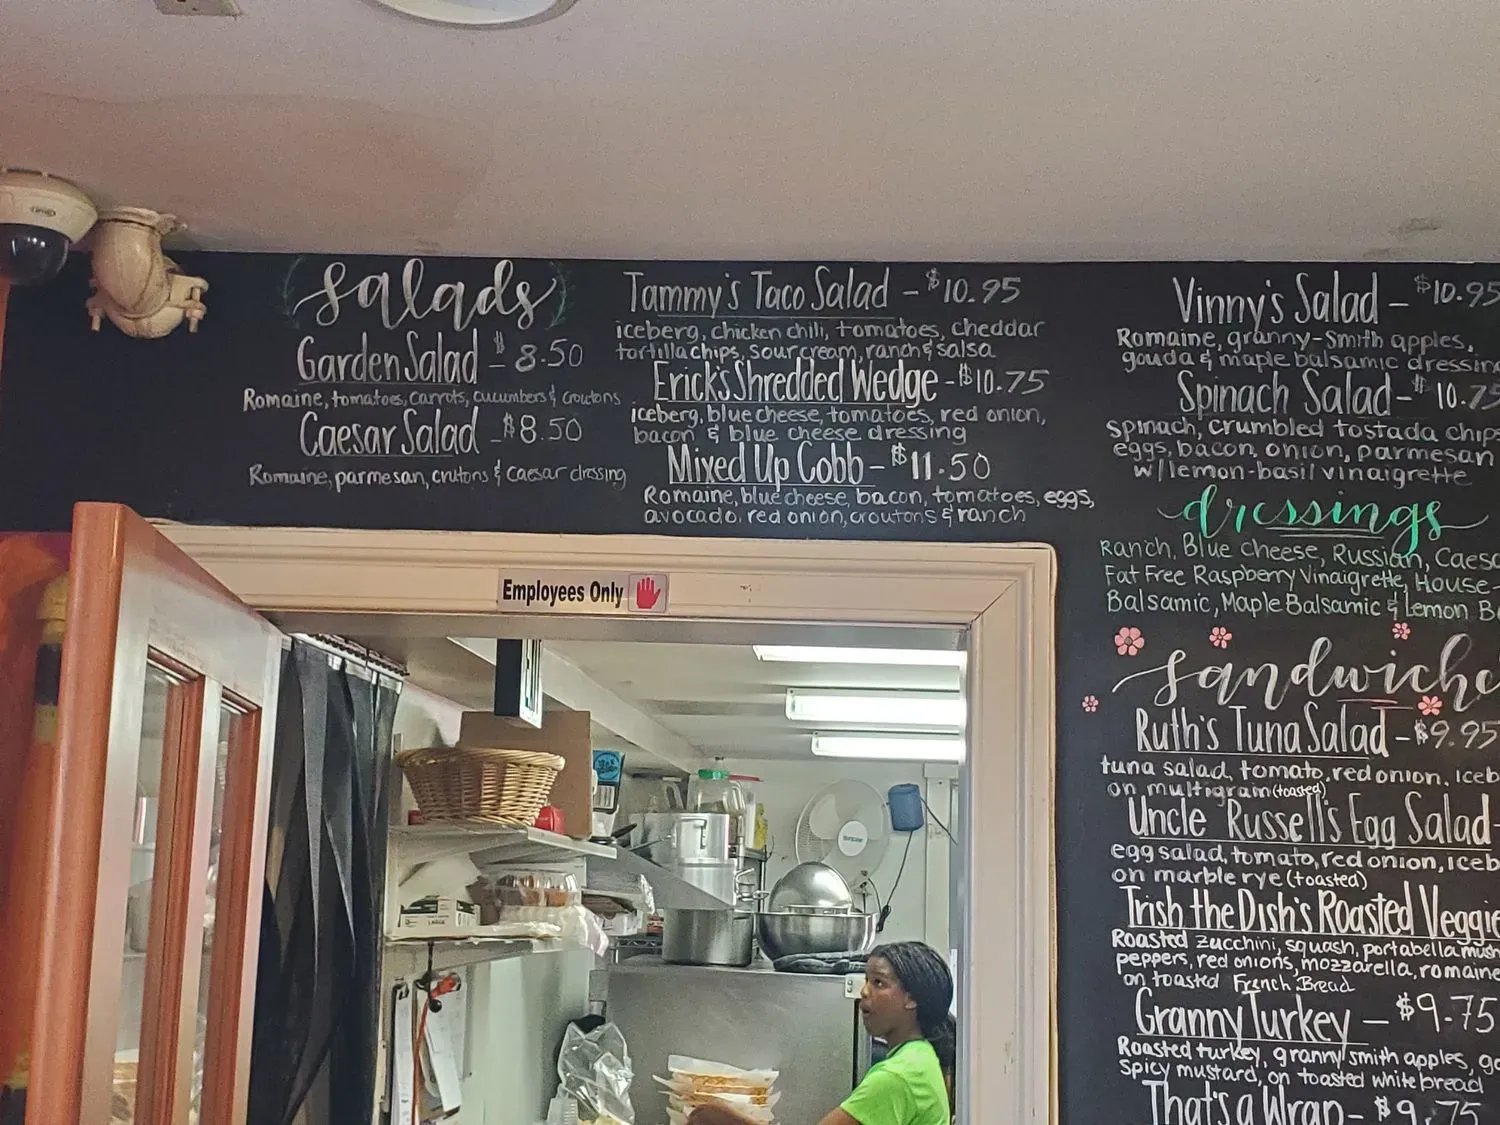 Salads
Garden Salad - $8.50
Romaine, tomatoes, carrots, cucumbers & croutons
Caesar Salad - $8.50
Romaine, parmesan, crutons & caesar dressing
Tammy's Taco Salad - $10.95
iceberg, chicken chili, tomatoes, cheddar
tortilla chips, sour cream, ranch & salsa
Erick's Shredded Wedge - $10.75
iceberg, blue cheese, tomatoes, red onion,
bacon & blue cheese dressing
Mixed Up Cobb - $11.50
Romaine, blue cheese, bacon, tomatoes, eggs,
avocado, red onion, croutons & ranch
Vinny's Salad - $10.95
Romaine, granny-smith apples,
gouda & maple balsamic dressing
Spinach Salad - $10.75
spinach, crumbled tostada chips
eggs, bacon, onion, parmesan
w/lemon-basil vinaigrette
dressings
Ranch, Blue Cheese, Russian,
Fat Free Raspberry Vinaigrette, House-
Balsamic, Maple Balsamic & Lemon
Sandwiche
Ruth's Tuna Salad - $9.95
tuna salad, tomato, red onion, iceb
on multigram (toasted)
Uncle Russell's Egg Salad -
egg salad, tomato, red onion, iceb
on marble rye (toasted)
Trish the Dish's Roasted Veggie
Roasted zucchini, squash, portabella mush
peppers, red onions, mozzarella, romaine
on toasted French Bread
Granny Turkey - $9.75
Roasted turkey, granny smith apples, go
spicy mustard, on toasted white bread
That's a Wrap - $9.75
Employees Only